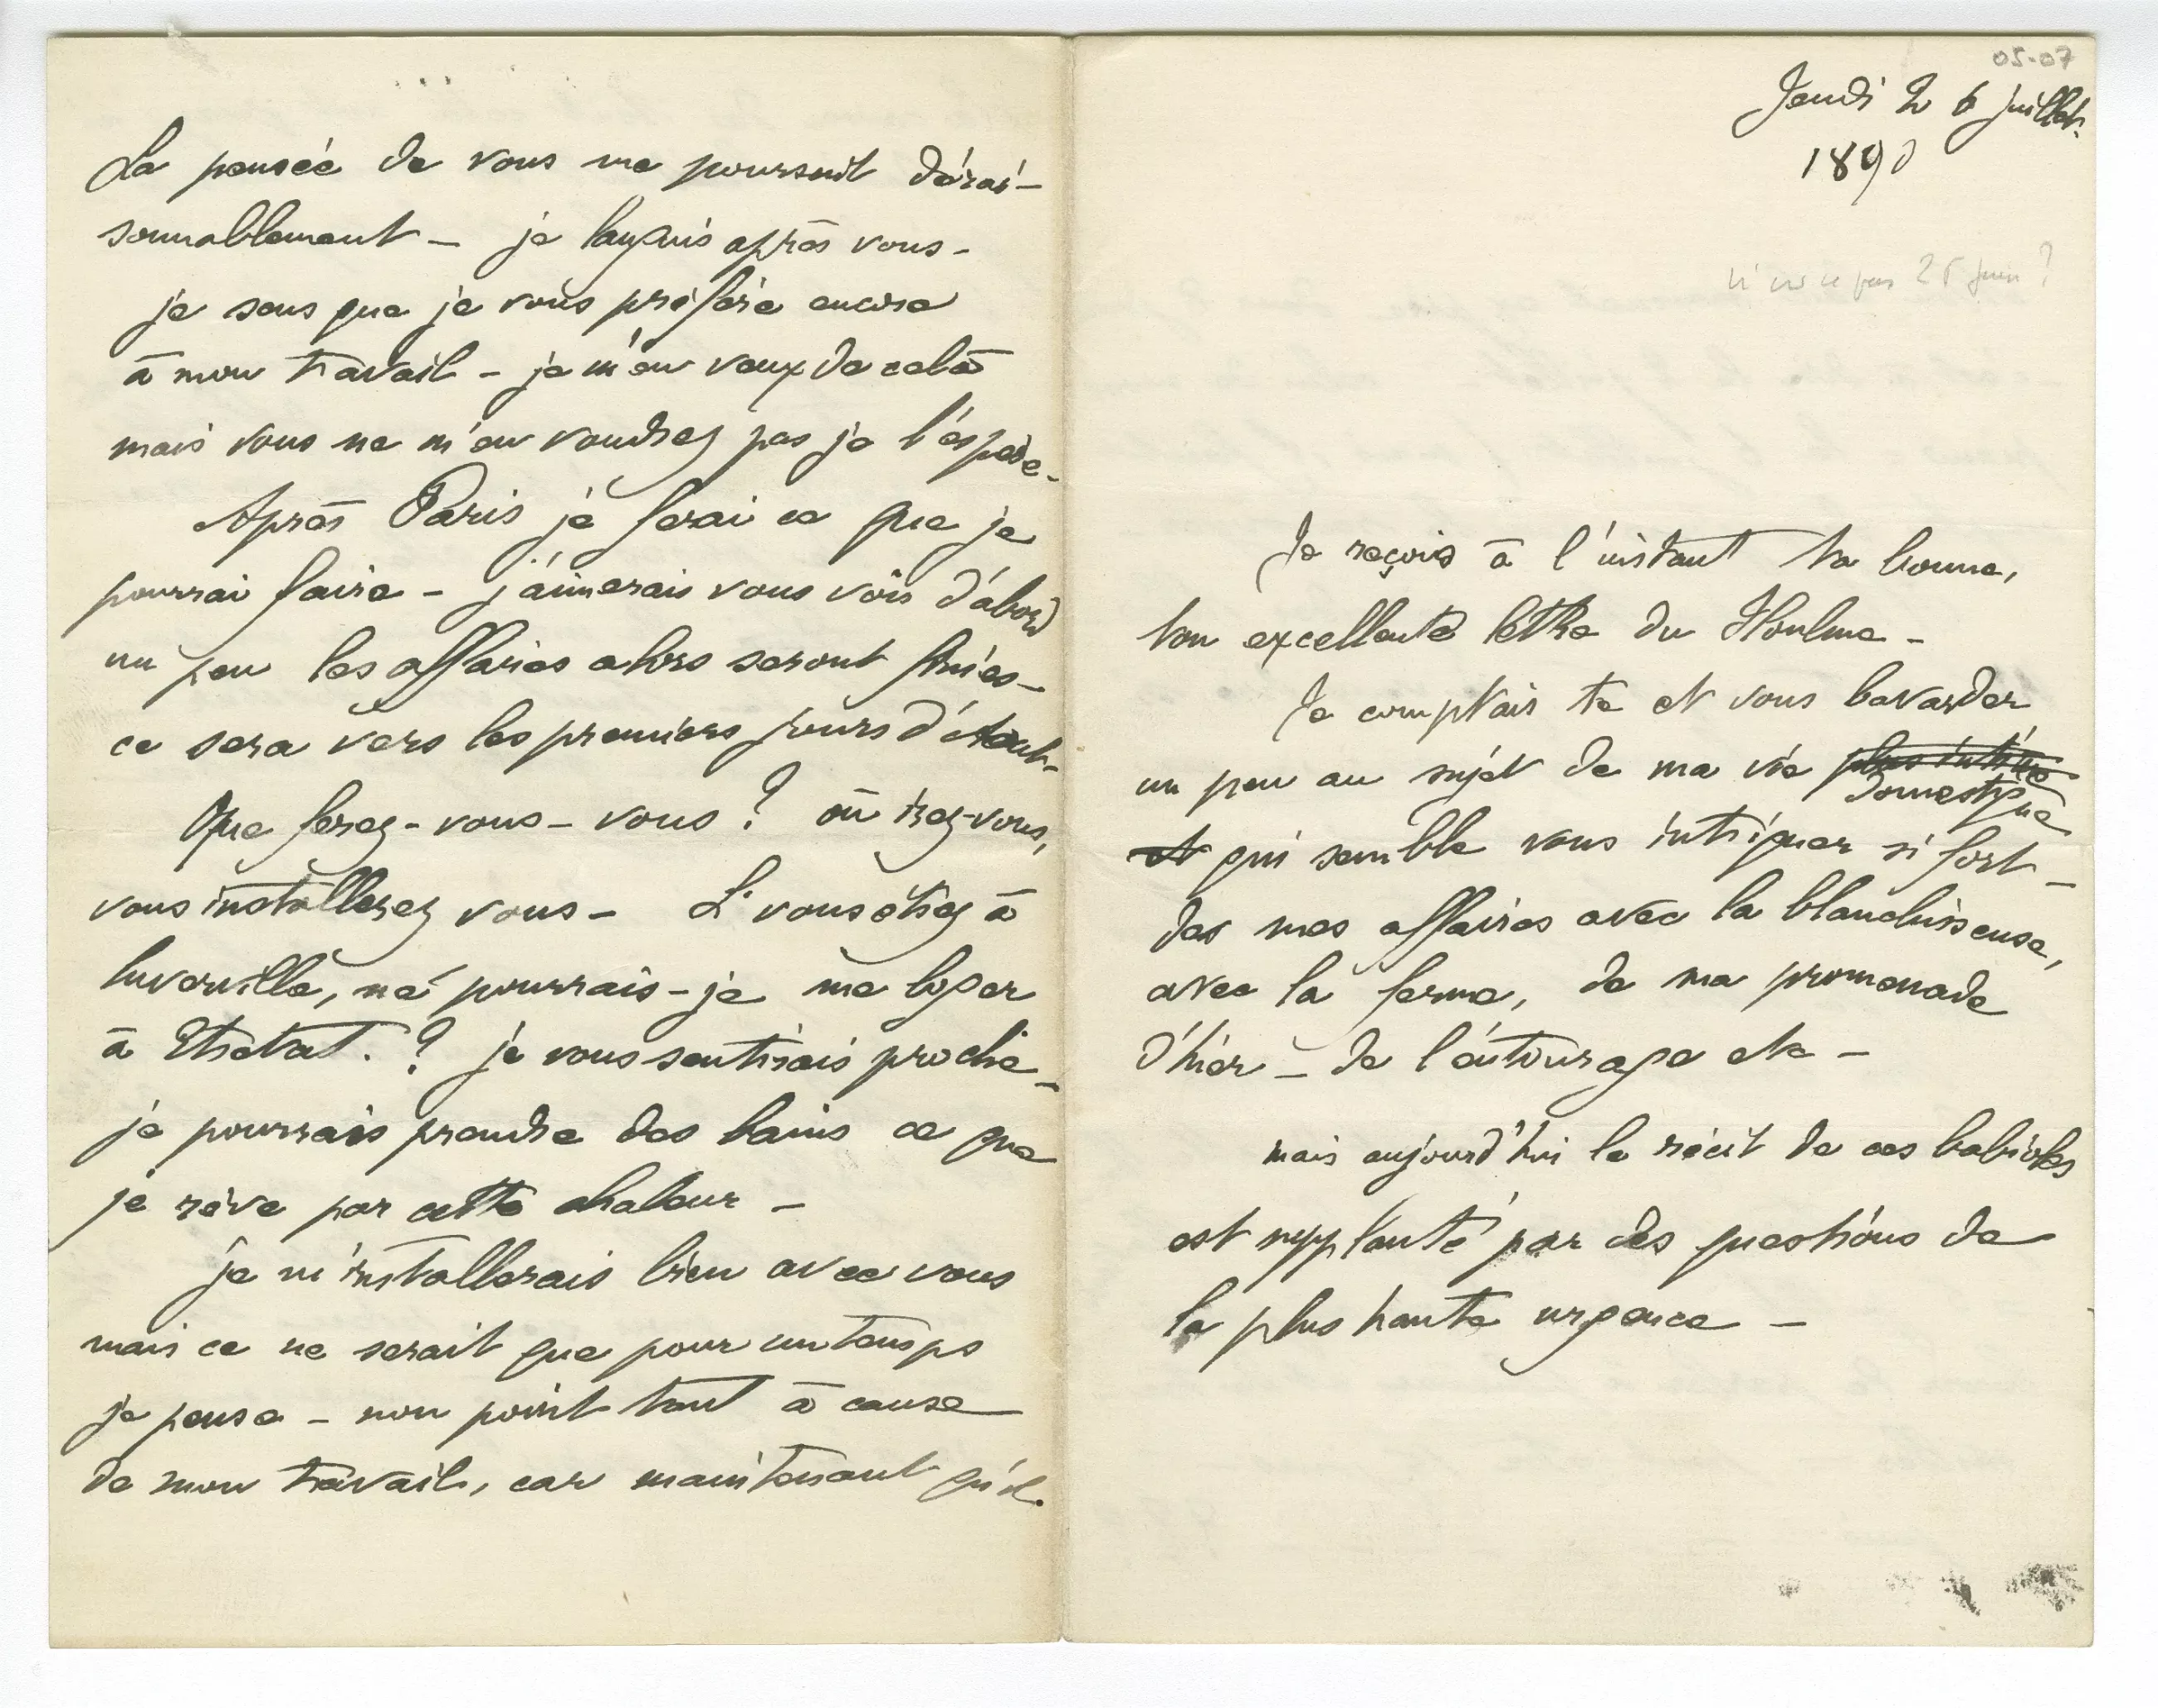 05-07
Jeudi 26 juillet.
1890
n'est ce pas 26 juin ?
Je reçois à l'instant ta bonne,
ton excellente lettre du Houlme –
Je comptais te et vous bavarder
un peu au sujet de ma vie plus intime
domestique
et qui semble vous intriguer si fort –
des mes affaires avec la blanchisseuse,
avec la ferme, de ma promenade
d'hier – de l'entourage etc –
mais aujourd'hui le récit de ces babioles
est supplanté par des questions de
la plus haute urgence –
La pensée de vous me poursuit dérai-
sonnablement – je languis après vous –
je sens que je vous préfère encore
à mon travail – je m'en veux de celà
mais vous ne m'en voudrez pas je l'espère –
Après Paris je ferai ce que je
pourrai faire – j'aimerais vous voir d'abord
un peu les affaires alors seront finies –
ce sera vers les premiers jours d'Aout –
Que ferez-vous – vous ? où irez-vous,
vous installerez vous – Si vous étiez à
Cuverville, ne pourrais-je me loger
à Etretat. ? je vous sentirais proche –
je pourrais prendre des bains ce que
je rêve par cette chaleur –
Je m'installerais bien avec vous
mais ce ne serait que pour un temps
je pense – non point tant à cause
de mon travail, car maintenant qu'il